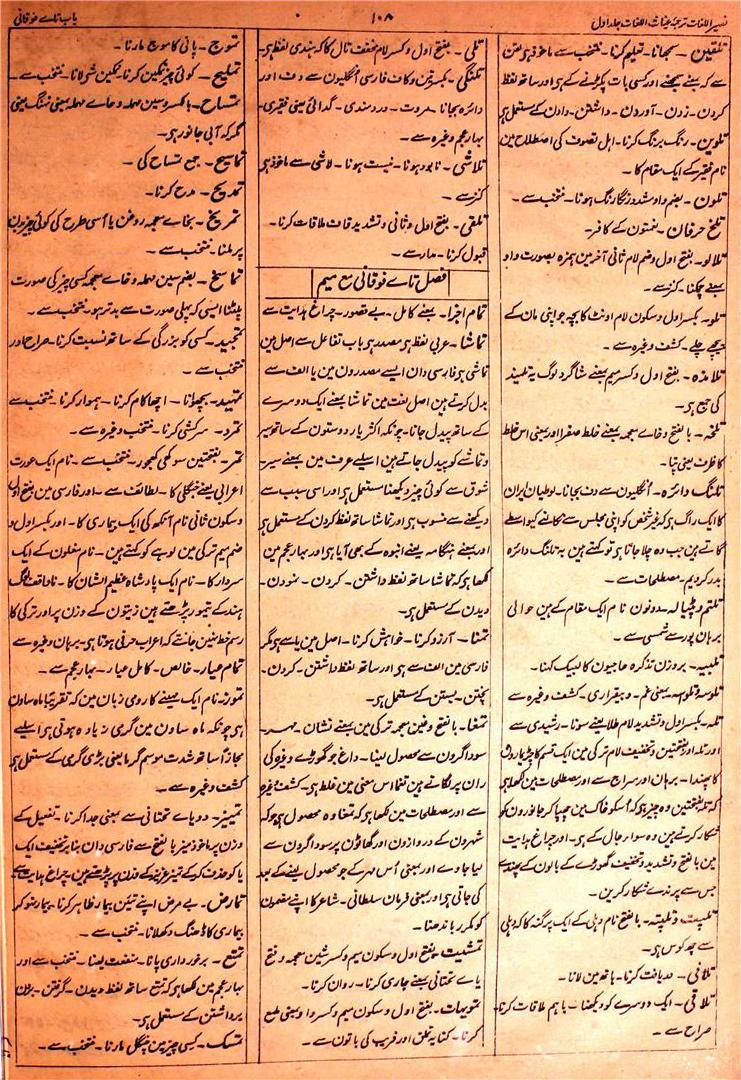 نصیر اللغات ترجمۂ غیاث اللغات جلد اول
۱۰۸
باب تاے فوقانی
تلقین ۔ سمجھانا ۔ تعلیم کرنا ۔ منتخب سے ماخوذ ہی
سے کہ بمعنے سمجھنے اور کسی بات پکڑنے کے ہی اور ساتھ لفظ
کردن ۔ زدن ۔ آوردن ۔ داشتن ۔ دادن کے مستعمل ہی
تلوین ۔ رنگ برنگ کرنا ۔ اہل تصوف کی اصطلاح مین
نام فقیر کے ایک مقام کا ۔
تلون ۔ بضم واو مشدد رنگارنگ ہونا ۔ منتخب سے ۔
تلخ حرفان ۔ کے کافر ۔
تلالو ۔ بفتح اول و ضم لام ثانی آخر مین ہمزہ بصورت واو
بمعنے چمکنا ۔ کنز سے ۔
تلو ۔ بکسر اول و سکون لام اونٹ کا بچہ جو اپنی مان کے
پیچھے چلے ۔ کشف وغیرہ سے ۔
تلامذہ ۔ بفتح اول و کسر میم بمعنے شاگرد لوگ یہ تلمیذ
کی جمع ہی ۔
تلخہ ۔ بالفتح و خاے معجمہ بمعنے خلط صفرا اور بمعنی اس خلط
کا ظرف یعنی پتا ۔
تلنگ دائرہ ۔ انگلیون سے دف بجانا ۔ لوطیان ایران
کا ایک راگ ہی کہ غیر شخص کو اپنی مجلس سے نکالنے کیواسطے
گاتے ہین جب وہ چلا جاتا ہی تو کہتے ہین بہ تلنگ دائرہ
بدر کردیم ۔ مصطلحات سے ۔
تلتم و پٹیالہ ۔ دونون نام ایک مقام کے ہین حوالی
برہان پور سے شمسی سے ۔
تلبیہ ۔ بروزن تذکرہ حاجیون کا لبیک کہنا ۔
تلوسہ و تلوسہ بمعنی غم ۔ و بیقراری ۔ کشف وغیرہ سے
تلہ ۔ بکسر اول و تشدید لام طلا یعنے سونا ۔ رشیدی سے
اور تلہ اول بفتحتین و تخفیف لام ترکی مین ایک قسم کا
کا پھندا ۔ برہان اور سراج سے اور مصطلحات مین لکھا ہی
کہ تلہ بفتحتین وہ چیز ہی کہ اُسکو خاک مین چھپا کر جانورون کو
شکار کرتے ہین وہ سواے جال کے ہی ۔ اور چراغ ہدایت
مین بالفتح و تشدید و تخفیف گھوڑے کے بالون کے پھندے
جس سے پرندے شکار کرین ۔
تلپت و تلپتہ ۔ بالفتح نام دہلی کے ایک پرگنہ کا کہ دہلی
سے چھ کوس ہی ۔
تلافی ۔ دریافت کرنا ۔ ہاتھ مین لانا ۔
تلاقی ۔ ایک دوسرے کو دیکھنا ۔ باہم ملاقات کرنا ۔
صراح سے ۔
تلی ۔ بفتح اول و کسر لام مخفف تال کا کہ ہندی لفظ ہی ۔
تلنگی ۔ بکسرتین و کاف فارسی انگلیون سے دف اور
دائرہ بجانا ۔ مروت ۔ دردمندی ۔ گدائی یعنی فقیری ۔
بہار عجم وغیرہ سے ۔
تلاشی ۔ نابود ہونا ۔ نیست ہونا ۔ لاشی سے ماخوذ ہی
کنز سے ۔
تلقی ۔ بفتح اول و ثانی و تشدید قاف ملاقات کرنا ۔
قبول کرنا ۔ مدار سے ۔
فصل تاے فوقانی مع میم
تمام اجزا ۔ بمعنے کامل ۔ بے قصور ۔ چراغ ہدایت سے
تماشا ۔ عربی لفظ ہی مصدر ہی باب تفاعل سے اصل مین
تماشی ہی فارسی دان ایسے مصدرون مین یا الف سے
بدل کرتے ہین اصل لغت مین تماشا بمعنے ایک دوسرے
کے ساتھ پیدل جانا ۔ چونکہ اکثر یار دوستون کے ساتھ سیر
و تماشے کو پیدل جاتے ہین اسلیے عرف مین بمعنے سیر
شوق سے کوئی چیز دیکھنا مستعمل ہی اور اسی سبب سے
دیکھنے سے منسوب ہی اور تماشا ساتھ لفظ کردن کے مستعمل ہی
اور بمعنے ہنگامہ یعنے انبوہ کے بھی آیا ہی اور بہار عجم مین
لکھا ہی کہ تماشا ساتھ لفظ داشتن ۔ کردن ۔ نمودن ۔
دیدن کے مستعمل ہی ۔
تمنا ۔ آرزو کرنا ۔ خواہش کرنا ۔ اصل مین یاسے ہی مگر
فارسی مین الف سے ہی اور ساتھ لفظ داشتن ۔ کردن ۔
پختن ۔ بستن کے مستعمل ہی ۔
تمغا ۔ بالفتح و غین معجمہ ترکی مین بمعنے نشان ۔ مہر ۔
سوداگرون سے محصول لینا ۔ داغ جو گھوڑے وغیرہ کی
ران پر لگاتے ہین تمغا اس معنی مین غلط ہی ۔ کشف وغیرہ
سے اور مصطلحات مین لکھا ہی کہ تمغا وہ محصول ہی جو کہ
شہرون کے دروازون اور گھاٹون پر سوداگرون سے
لیا جاوے اور بمعنی اُس مہر کے جو محصول لینے کے بعد
کی جاتی ہی اور بمعنی فرمان سلطانی ۔ شاعر کا اپنے مضمون
کو مکرر باندھنا ۔
تمشیت ۔ بفتح اول و سکون میم و کسر شین معجمہ و فتح
یاے تحتانی بمعنے جاری کرنا ۔ روان کرنا ۔
تمویہات ۔ بفتح اول و سکون میم و کسر واو بمعنی ملمع
کرنا ۔ کنایہ تملق اور فریب کی باتون سے ۔
تموج ۔ پانی کا موج مارنا ۔
تملیح ۔ کوئی چیز نمکین کرنا ۔ نمکین شے لانا ۔ منتخب سے ۔
تمساح ۔ بالکسر و سین مہملہ و حاے مہملہ بمعنی نہنگ یعنی
مگر کہ آبی جانور ہی ۔
تماسیح ۔ جمع تمساح کی
تمدیح ۔ مدح کرنا ۔
تمریخ ۔ بخاے معجمہ روغن یا اُسی طرح کی کوئی چیز بدن
پر ملنا ۔ منتخب سے ۔
تماسخ ۔ بضم سین مہملہ و خاے معجمہ کسی چیز کی صورت
پلٹنا ایسی کہ پہلی صورت سے بدتر ہو ۔ منتخب سے ۔
تمجید ۔ کسی کو بزرگی کے ساتھ نسبت کرنا ۔ صراح اور
منتخب سے ۔
تمہید ۔ بچھوانا ۔ اچھا کام کرنا ۔ ہموار کرنا ۔ منتخب سے
تمرد ۔ سرکشی کرنا ۔ منتخب وغیرہ سے ۔
تمر ۔ بفتحتین سوکھی کھجور ۔ منتخب سے ۔ نام ایک عورت
اعرابی یعنے جنگلی کا ۔ لطائف سے ۔ اور فارسی مین بفتح اول
و سکون ثانی نام آنکھ کی ایک بیماری کا ۔ اور بکسر اول و
ضم میم ترکی مین لوہے کو کہتے ہین ۔ نام مغلون کے ایک
سردار کا ۔ نام ایک بادشاہ عظیم الشان کا ۔ ناواقف لوگ
ہند کے تیمور پڑھتے ہین زیتون کے وزن پر اور ترکی کا
رسم خط نہین جانتے کہ اعراب حرفی ہوتا ہی ۔ برہان وغیرہ سے
تمام عیار ۔ خالص ۔ کامل عیار ۔ بہار عجم سے ۔
تموز ۔ نام ایک مہینے کا رومی زبان مین کہ تقریباً ماہ ساون
ہی چونکہ ماہ ساون مین گرمی زیادہ ہوتی ہی اسلیے
مجازاً ساتھ شدت موسم گرما یعنی بڑی گرمی کے مستعمل ہی
کشف وغیرہ سے ۔
تمییز ۔ دو یاے تحتانی سے بمعنی جدا کرنا ۔ تفعیل کے
وزن پر ماخوذ میز بالفتح سے فارسی دان بنابر تخفیف ایک
یا کو حذف کرکے تمیز عزیز کے وزن پر پڑھتے ہین ۔ چراغ ہدایت سے
تمارض ۔ بے مرض اپنے تئین بیمار ظاہر کرنا ۔ بیمار نہو کر
بیماری کا ڈھنگ دکھلانا ۔ منتخب سے ۔
تمتع ۔ برخورداری پانا ۔ منفعت لینا ۔ منتخب سے اور
بہار عجم مین لکھا ہی کہ تمتع ساتھ لفظ دیدن ۔ گرفتن ۔ بردن
برداشتن کے مستعمل ہی ۔
تمسک ۔ کسی چیز مین چنگل مارنا ۔ منتخب سے ۔